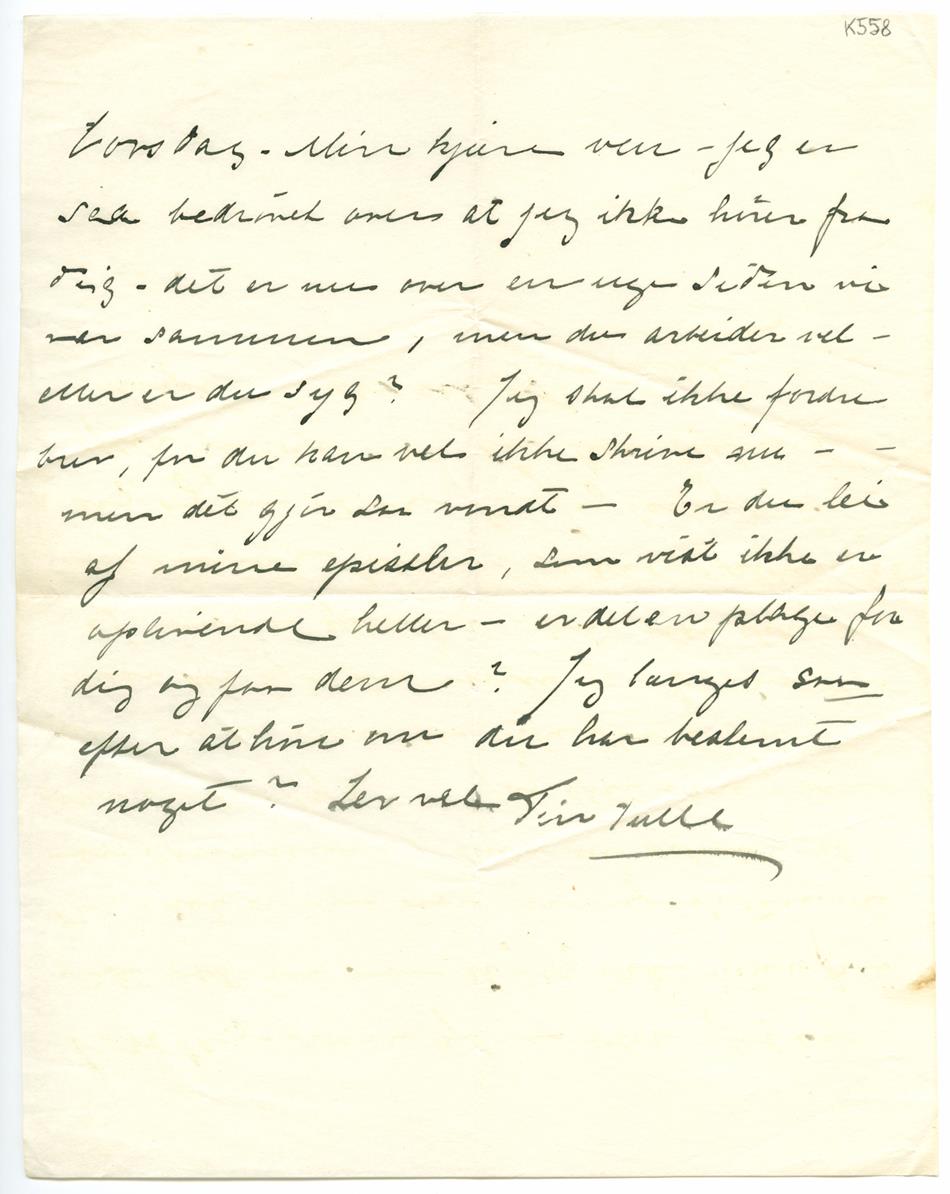 K558
Torsdag - Min kjære ven - jeg er
saa bedrøvet over at jeg ikke hører fra
dig - det er nu over en uge siden vi
var sammen, men du arbeider vel -
eller er du syg? Jeg skal ikke fordre
brev, for du kan vel ikke skrive nu - -
men det gjør saa vondt - Er du lei
af mine epistler, som vist ikke er
oplivende heller - er det en plage for
dig og faa dem? Jeg længes saa
efter at høre om du har bestemt
noget? Lev vel Din Tulla